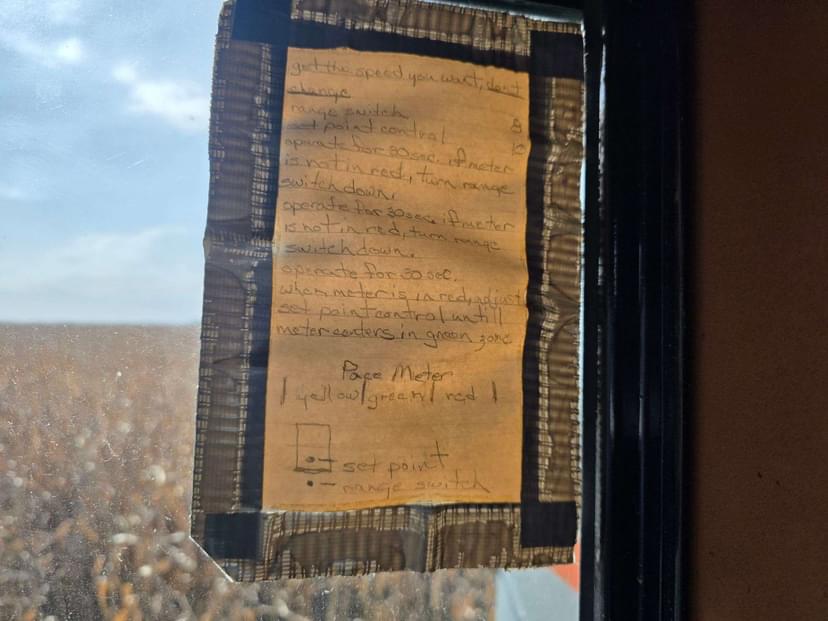 get the speed you want, don't
change
range switch 8
set point control 10
operate for 30 sec. if meter
is not in red, turn range
switch down.
operate for 30 sec. if meter
is not in red, turn range
switch down.
operate for 30 sec.
when meter is in red, adjust
set point control untill
meter centers in green zone
Pace Meter
| yellow | green | red |
set point
range switch